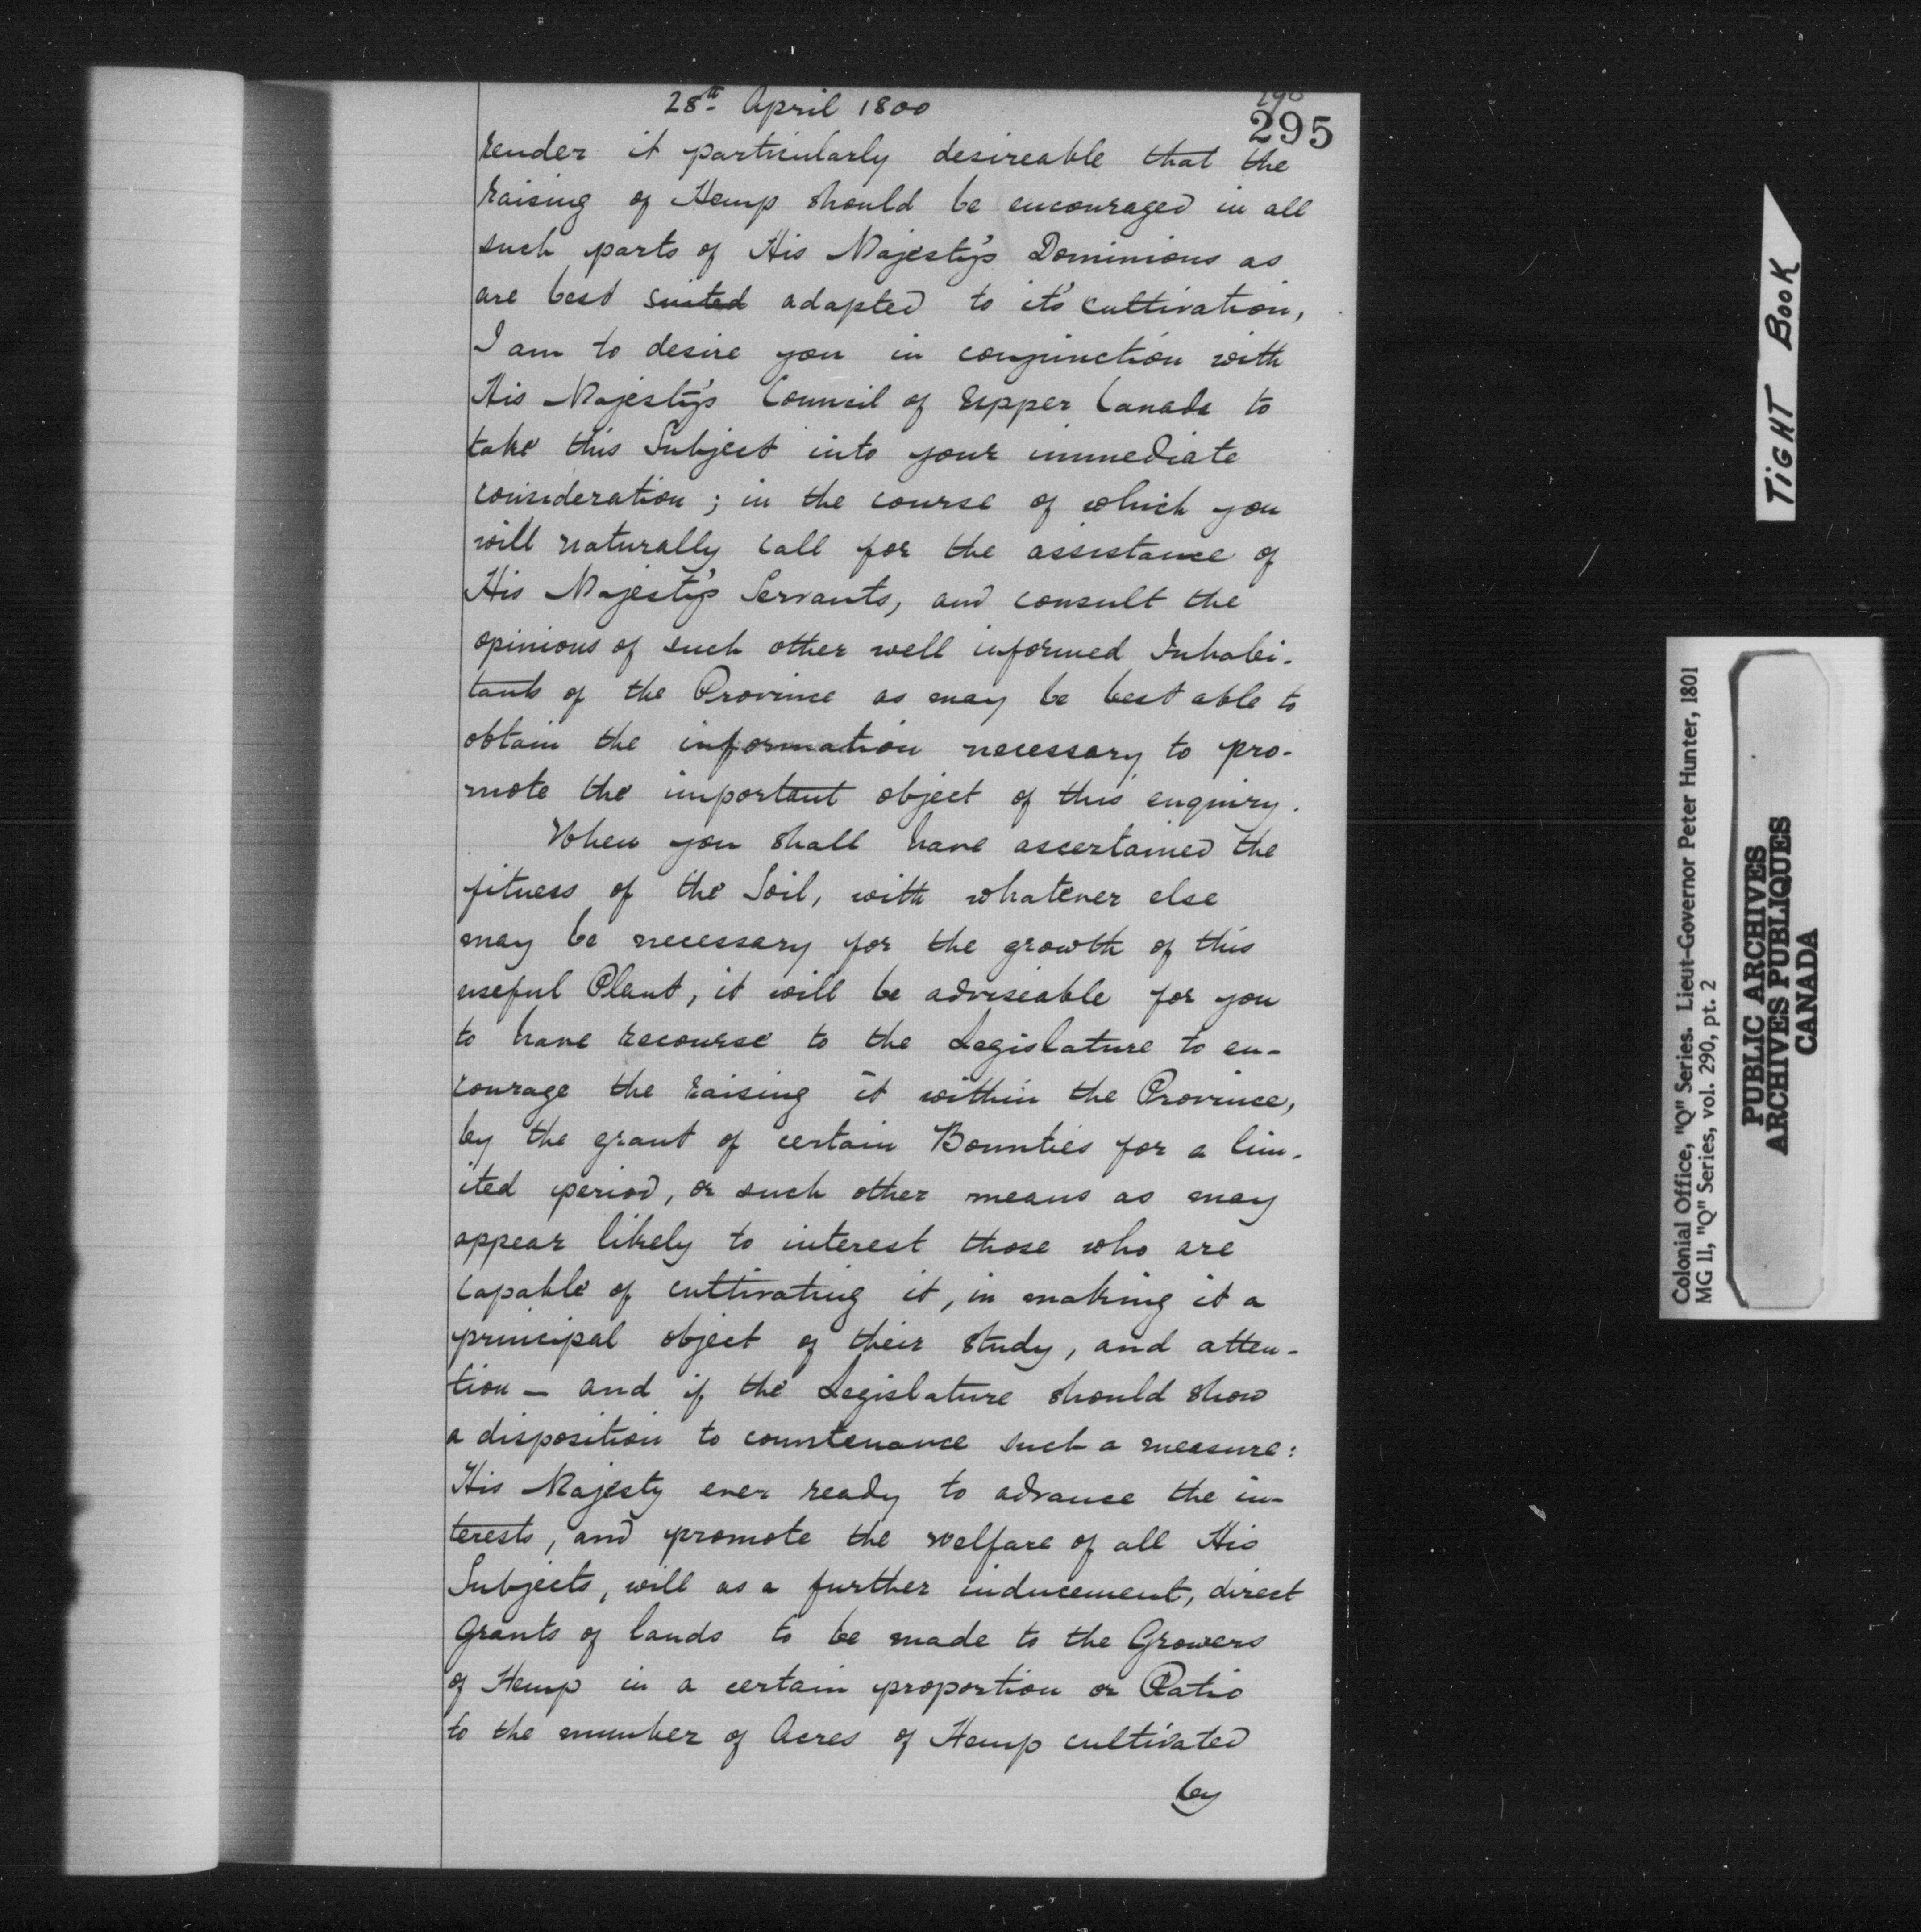 28th April 1800
295
render it particularly desireable that the
raising of Hemp should be encouraged in all
such parts of His Majesty's Dominions as
are best suited adapted to it's cultivation,
I am to desire you in conjunction with
His Majesty's Council of Upper Canada to
take this Subject into your immediate
consideration; in the course of which you
will naturally call for the assistance of
His Majesty's Servants, and consult the
opinions of such other well informed Inhabi-
tants of the Province as may be best able to
obtain the information necessary to pro-
mote the important object of this enquiry.
When you shall have ascertained the
fitness of the Soil, with whatever else
may be necessary for the growth of this
useful Plant, it will be adviseable for you
to have recourse to the Legislature to en-
courage the raising it within the Province,
by the grant of certain Bounties for a lim-
ited period, or such other means as may
appear likely to interest those who are
capable of cultivating it, in making it a
principal object of their study, and atten-
tion — and if the Legislature should show
a disposition to countenance such a measure:
His Majesty ever ready to advance the in-
terests, and promote the welfare of all His
Subjects, will as a further inducement, direct
Grants of lands to be made to the Growers
of Hemp in a certain proportion or Ratio
to the number of Acres of Hemp cultivated
by
TIGHT BOOK
Colonial Office, "Q" Series. Lieut-Governor Peter Hunter, 1801
MG 11, "Q" Series, vol. 290, pt. 2
PUBLIC ARCHIVES
ARCHIVES PUBLIQUES
CANADA